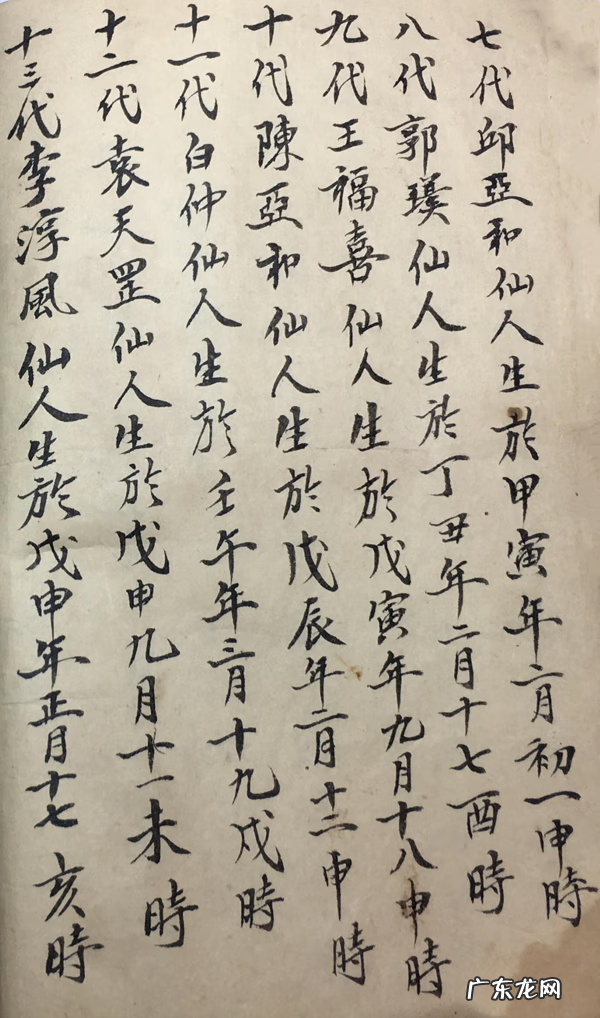 七代邱亞和仙人生於甲寅年六月初一申時
八代郭璞仙人生於丁丑年二月十七酉時
九代王福喜仙人生於戊寅年九月十八申時
十代陳亞和仙人生於戊辰年二月十二申時
十一代白仲仙人生於壬午年三月十九戌時
十二代袁天罡仙人生於戊申九月十一未時
十三代李淳風仙人生於戊申年正月十七亥時
广东龙网